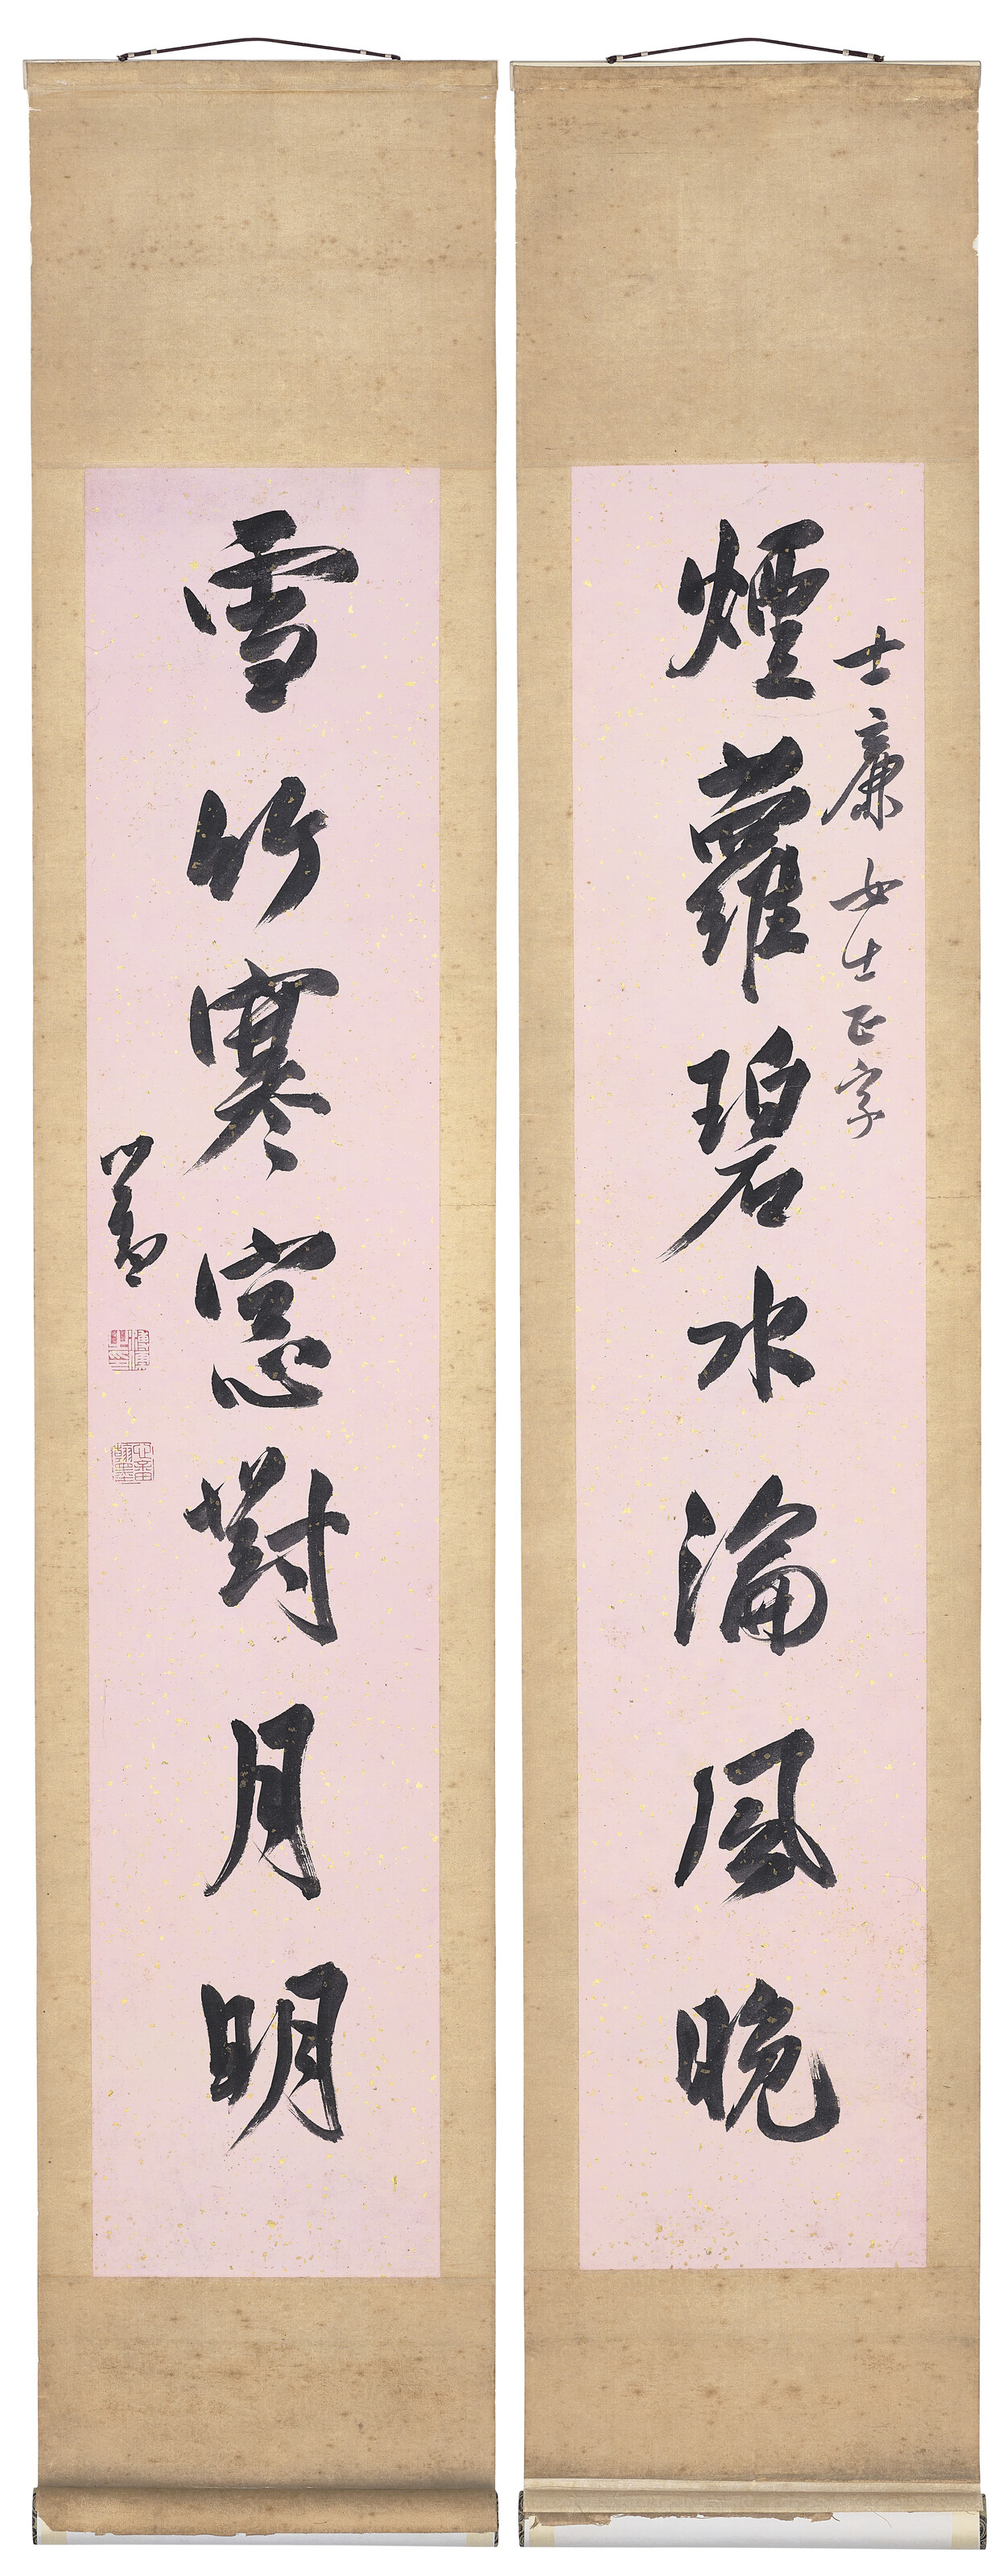 士廉女士正字
煙蘿碧水淪風晚
雪竹寒窓對月明